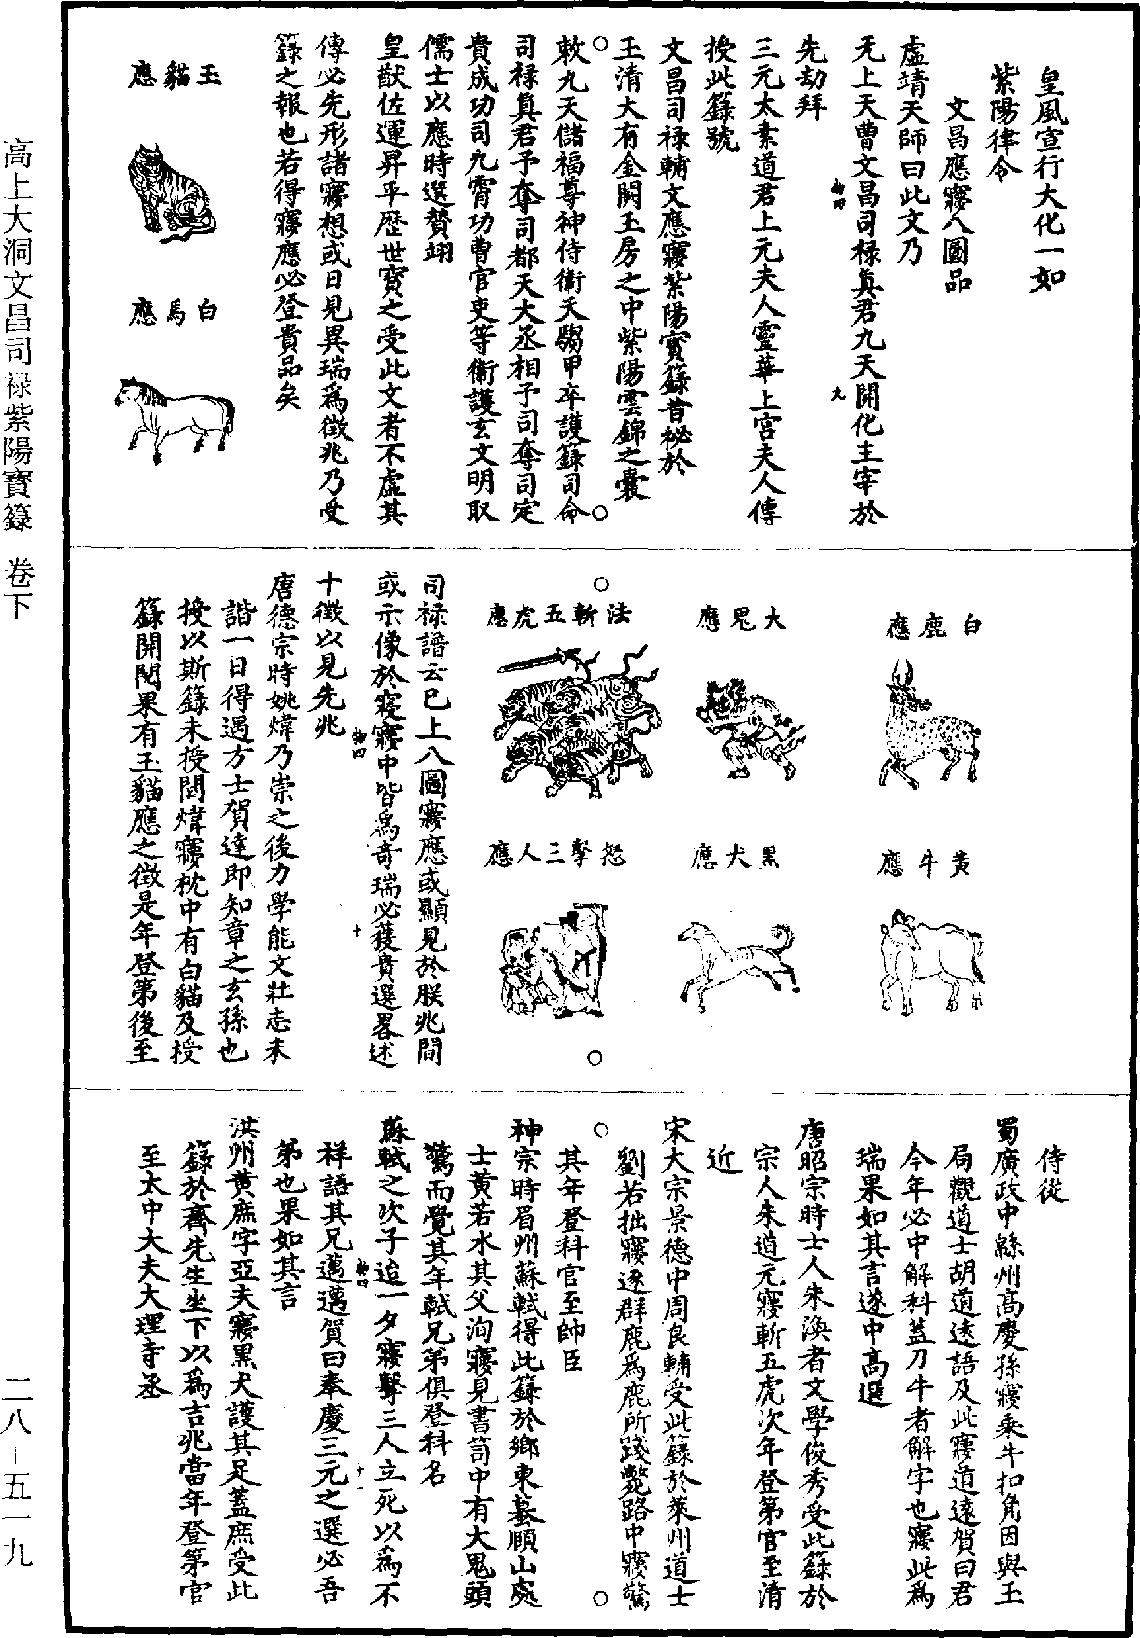 皇風宣行大化一如
紫陽律令
文昌應夢八圖品
虛靖天師曰此文乃
无上天曹文昌司祿真君九天開化主宰於
先劫拜
三元太素道君上元夫人靈華上宮夫人傳
授此籙號
文昌司祿輔文應夢紫陽寶籙昔祕於
玉清大有金闕玉房之中紫陽雲錦之囊
敕九天儲福尊神侍衛天騶甲卒護籙司命
司祿真君予奪司都天大丞相予司奪司定
貴成功司九霄功曹官吏等衛護玄文明取
儒士以應時選贊翊
皇猷佐運昇平歷世寶之受此文者不虛其
傳必先形諸夢想或日見異瑞為徵兆乃受
籙之報也若得夢應必登貴品矣
玉貓應
白馬應
白鹿應
黃牛應
大鬼應
黑犬應
法斬五虎應
怒擊三人應
司祿譜云已上八圖夢應或顯見於朕兆間
或示像於寢夢中皆為奇瑞必獲貴選畧述
十徵以見先兆
唐德宗時姚煒乃崇之後力學能文壯志未
諧一日得遇方士賀達即知章之玄孫也
授以斯籙未授間煒夢枕中有白貓及授
籙開閱果有玉貓應之徵是年登第後至
侍從
蜀廣政中緜州高慶孫夢乘牛扣角因與玉
局觀道士胡道遠語及此夢道遠賀曰君
今年必中解科蓋刀牛者解字也夢此為
瑞果如其言遂中高選
唐昭宗時士人朱渙者文學俊秀受此籙於
宗人朱道元夢斬五虎次年登第官至清
近
宋大宗景德中周良輔受此籙於萊州道士
劉若拙夢逐群鹿為鹿所踐斃路中夢驚
其年登科官至帥臣
神宗時眉州蘇軾得此籙於鄉東蟇頤山處
士黃若水其父洵夢見書笥中有大鬼頭
驚而覺其年軾兄弟俱登科名
蘇軾之次子迨一夕夢擊三人立死以為不
祥語其兄邁邁賀曰奉慶三元之選必吾
弟也果如其言
洪州黃庶字亞夫夢黑犬護其足蓋庶受此
籙於齋先生坐下以為吉兆當年登第官
至太中大夫大理寺丞
高上大洞文昌司祿紫陽寶籙 卷下
二八－五一九